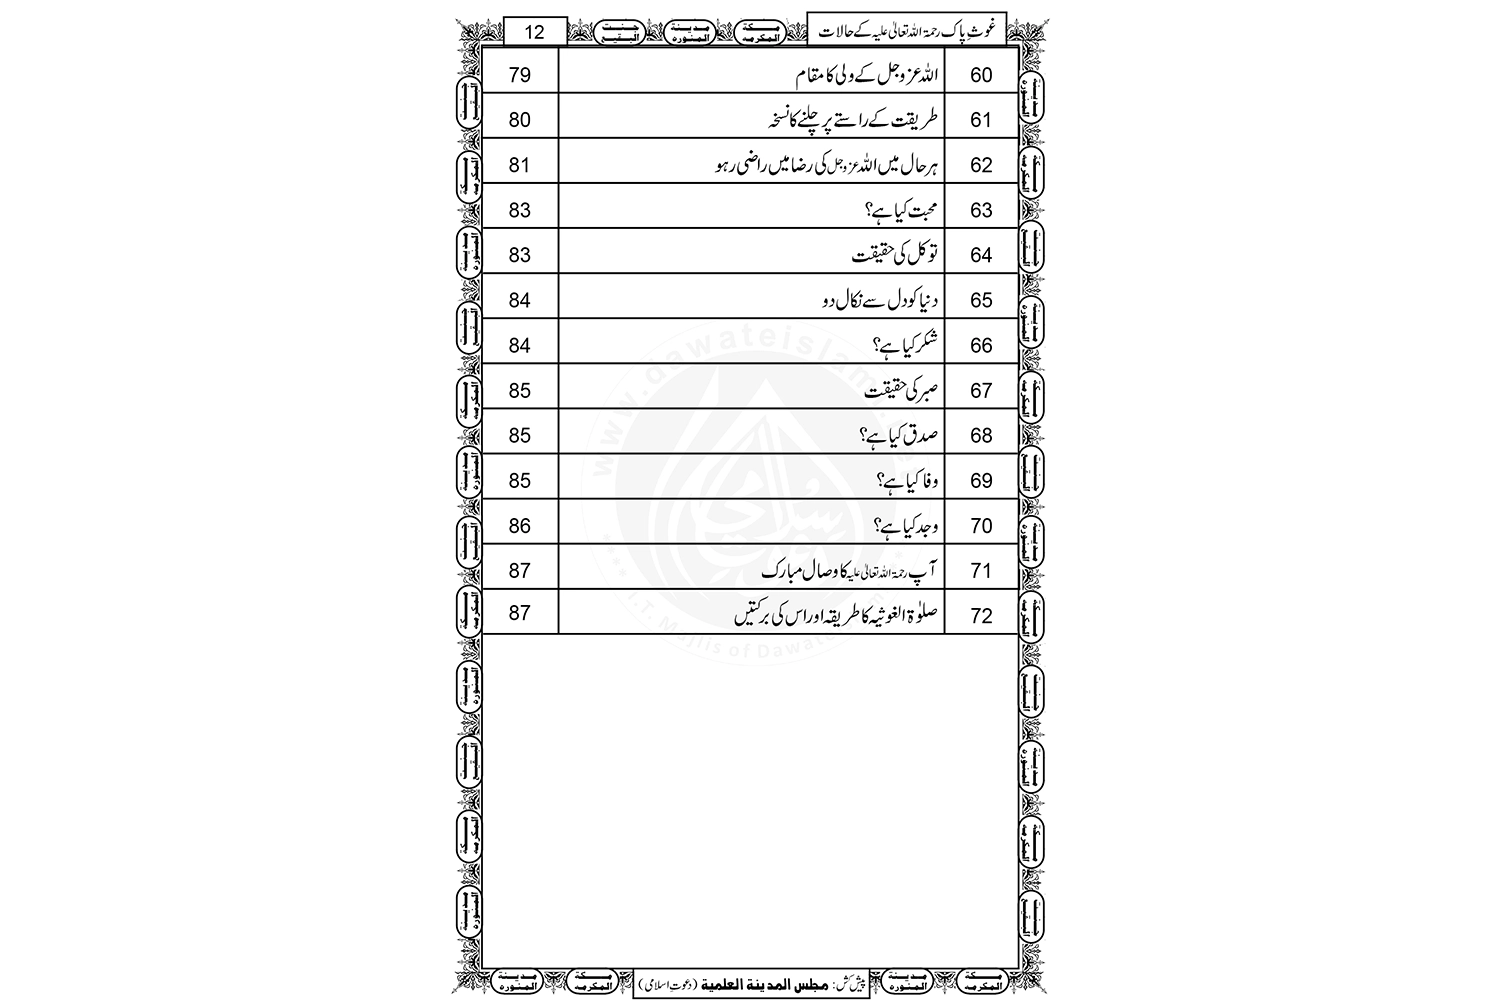 غوثِ پاک رحمۃ اللہ تعالیٰ علیہ کے حالات
جنت البقیع
مدینة المنورہ
مكة المكرمه
12
60 اللہ عزوجل کے ولی کا مقام 79
61 طریقت کے راستے پر چلنے کا نسخہ 80
62 ہر حال میں اللہ عزوجل کی رضا میں راضی رہو 81
63 محبت کیا ہے؟ 83
64 توکل کی حقیقت 83
65 دنیا کو دل سے نکال دو 84
66 شکر کیا ہے؟ 84
67 صبر کی حقیقت 85
68 صدق کیا ہے؟ 85
69 وفا کیا ہے؟ 85
70 وجد کیا ہے؟ 86
71 آپ رحمۃ اللہ تعالیٰ علیہ کا وصال مبارک 87
72 صلوٰۃ الغوثیہ کا طریقہ اور اس کی برکتیں 87
پیش کش: مجلس المدینة العلمیة (دعوتِ اسلامی)
www.dawateislami.net
I.T. Majlis of Dawateislami